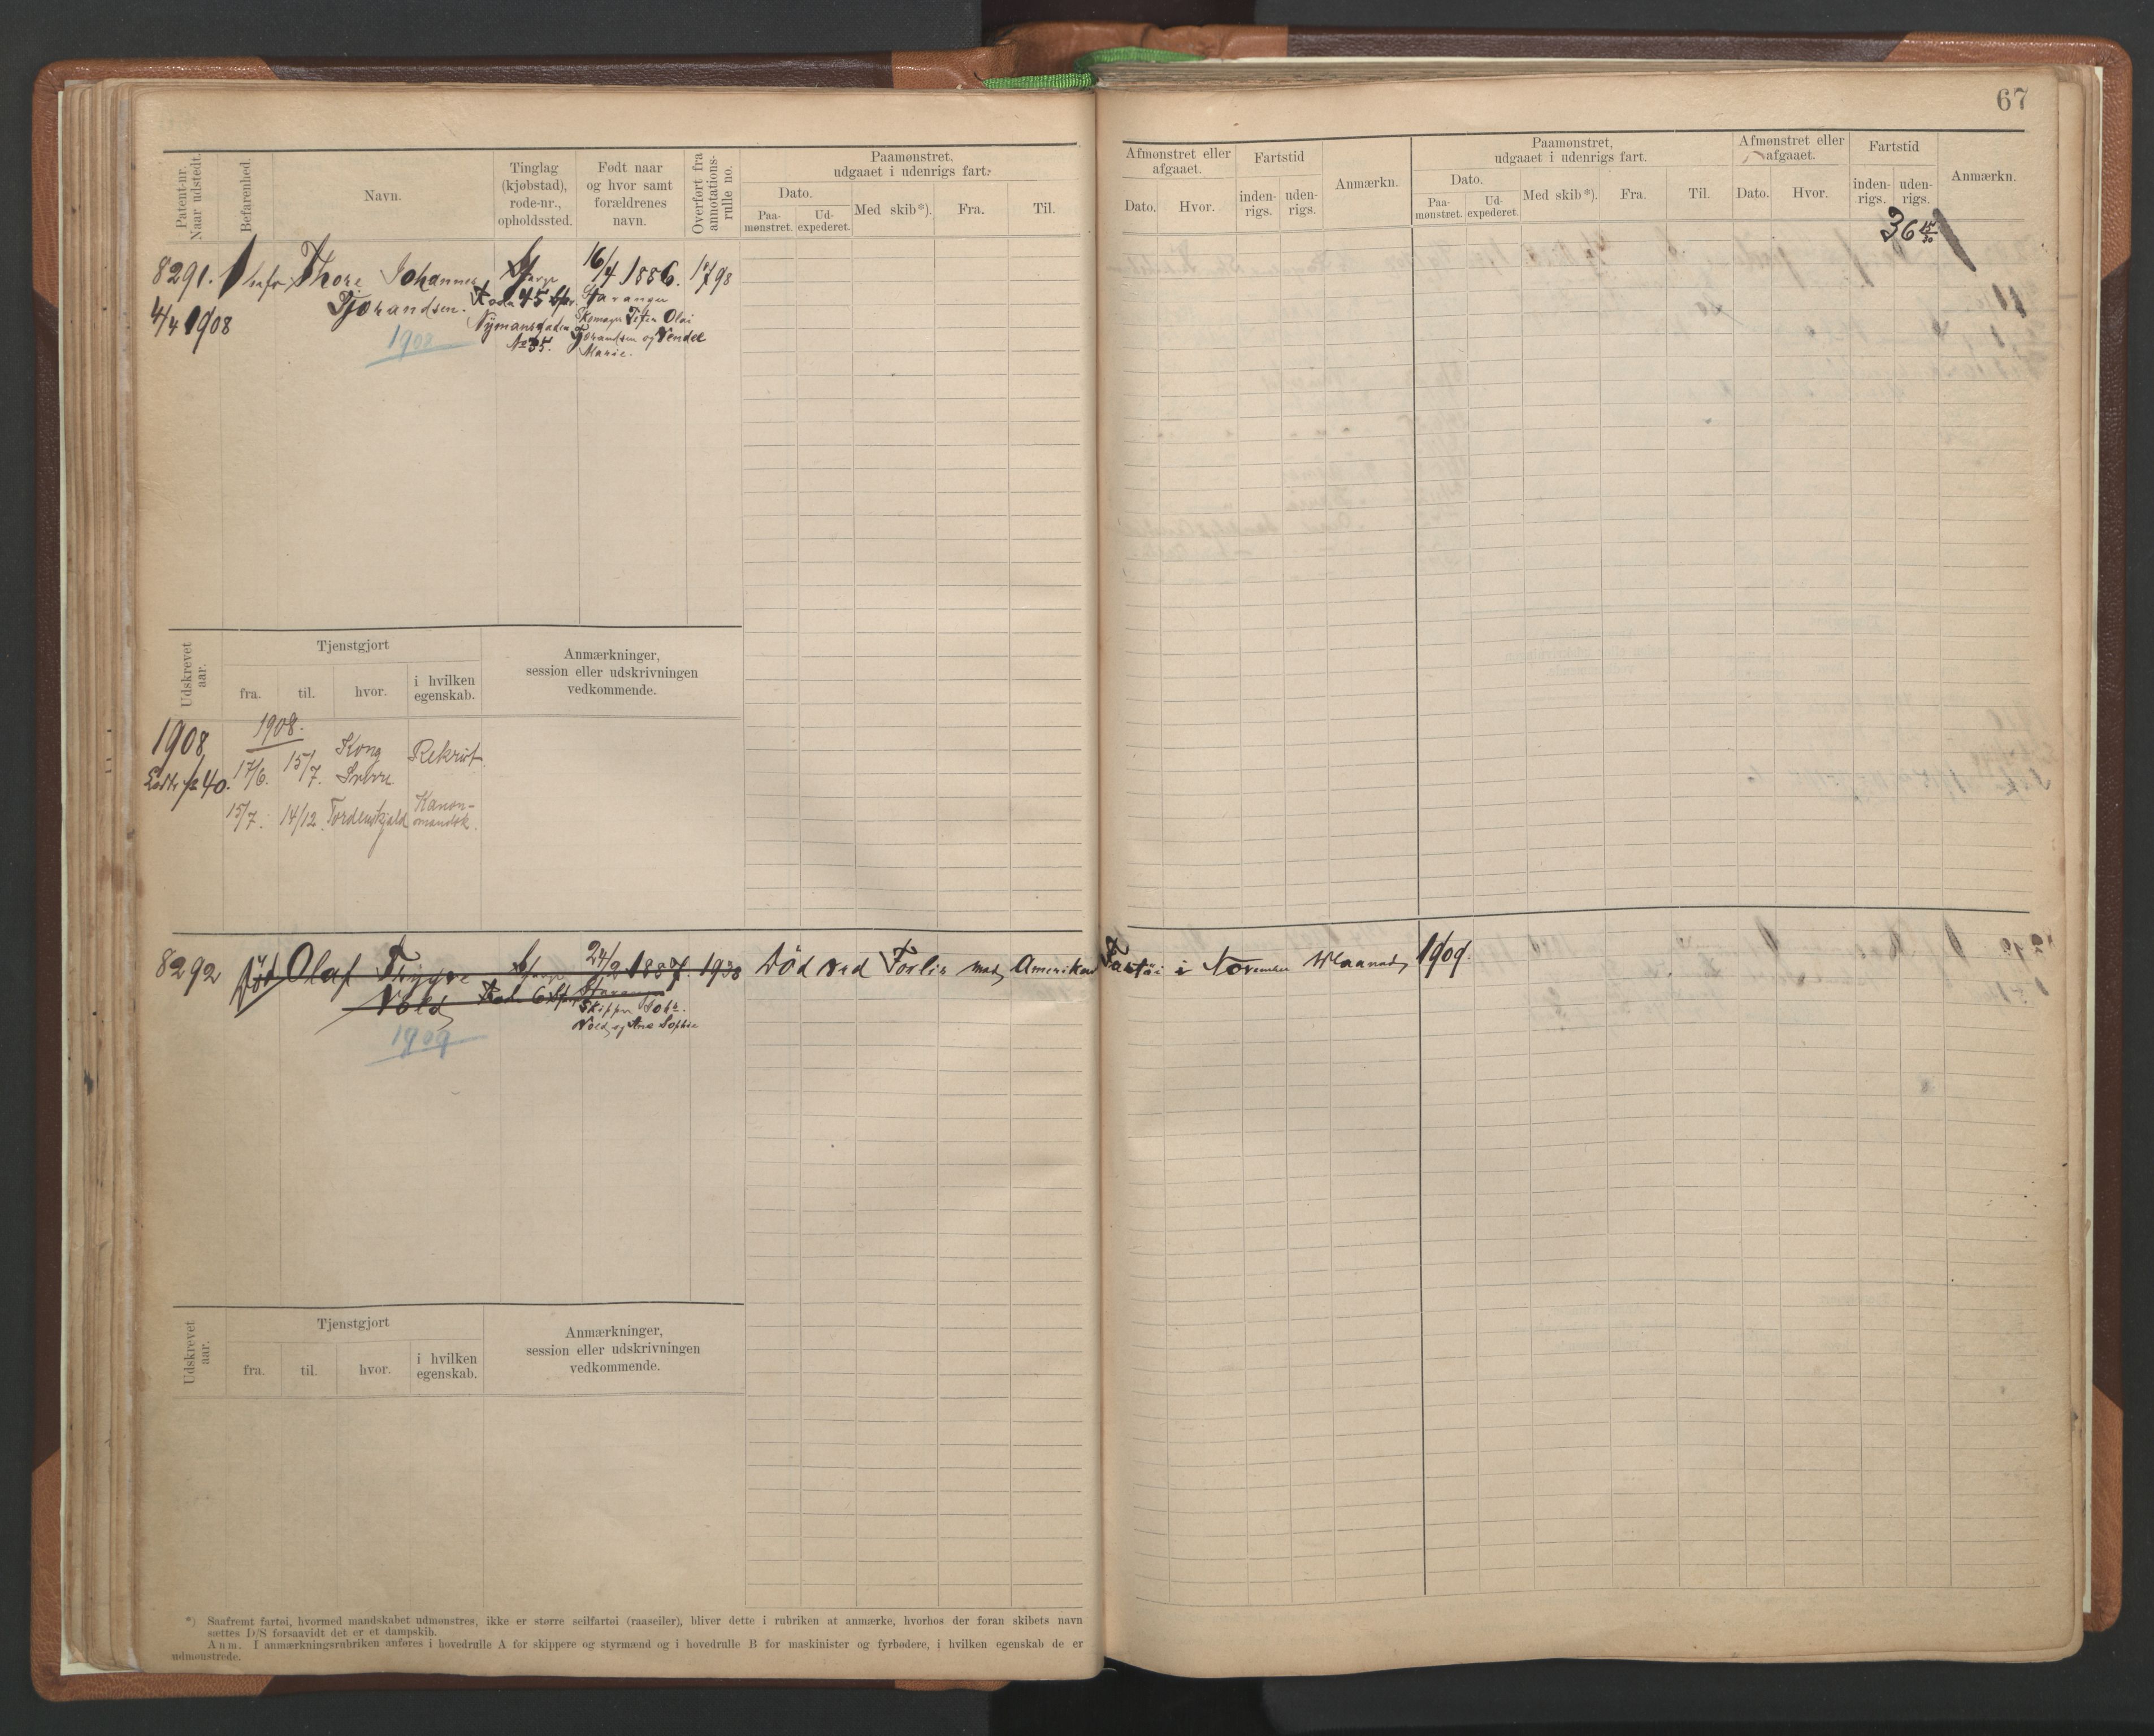 67
Patent-nr.
Naar udstedt.
Befarenhed.
Navn.
Tinglag
(kjøbstad),
rode-nr.,
opholdssted.
Født naar
og hvor samt
forældrenes
navn.
Overført fra
annotations-
rulle no.
Paamønstret,
udgaaet i udenrigs fart.
Dato.
Paa-
mønstret.
Ud-
expederet.
Med skib*).
Fra.
Til.
Afmønstret eller
afgaaet.
Dato.
Hvor.
Fartstid
inden-
rigs.
uden-
rigs.
Anmærkn.
Paamønstret,
udgaaet i udenrigs fart.
Dato.
Paa-
mønstret.
Ud-
expederet.
Med skib*).
Fra.
Til.
Afmønstret eller
afgaaet.
Dato.
Hvor.
Fartstid
inden-
rigs.
uden-
rigs.
Anmærkn.
36
8291.
4/4 1908
Thore Johannes
Tjorandsen.
1908
Rode 45
Nymansgaden
No 35.
16/4 1886.
Stavanger
Olai
Tjorandsen og Vendel
Marie.
1798
Udskrevet
aar.
Tjenstgjort
fra.
til.
hvor.
i hvilken
egenskab.
Anmærkninger,
session eller udskrivningen
vedkommende.
1908
40.
1908.
17/6. 15/7. Kong Sverre Rekrut.
15/7. 14/12. Tordenskjold Kanon-
mandsk.
8292
Død Olaf Trygve
Vold
1909
Rode 6
24/2 1887.
Stavanger
Skipper Joh.
Vold og Ane Sophie
1938
Död ved Forlis med Amerikansk Fartöi i November Maaned 1909.
Udskrevet
aar.
Tjenstgjort
fra.
til.
hvor.
i hvilken
egenskab.
Anmærkninger,
session eller udskrivningen
vedkommende.
*) Saafremt fartøi, hvormed mandskabet udmønstres, ikke er større seilfartøi (raaseiler), bliver dette i rubriken at anmærke, hvorhos der foran skibets navn
sættes D/S forsaavidt det er et dampskib.
Anm. I anmærkningsrubriken anføres i hovedrulle A for skippere og styrmænd og i hovedrulle B for maskinister og fyrbødere, i hvilken egenskab de er
udmønstrede.